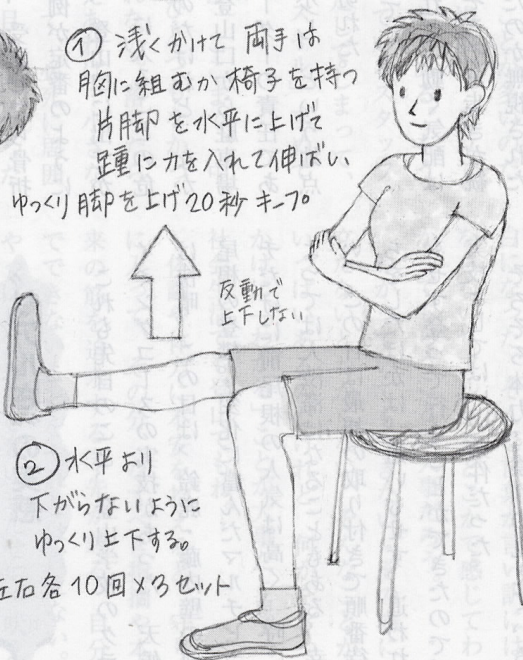 ① 浅くかけて 両手は
胸に組むか 椅子を持つ
片脚を水平に上げて
踵に力を入れて伸ばし
ゆっくり脚を上げ20秒キープ
反動で
上下しない
② 水平より
下がらないように
ゆっくり上下する。
左右各10回×3セット